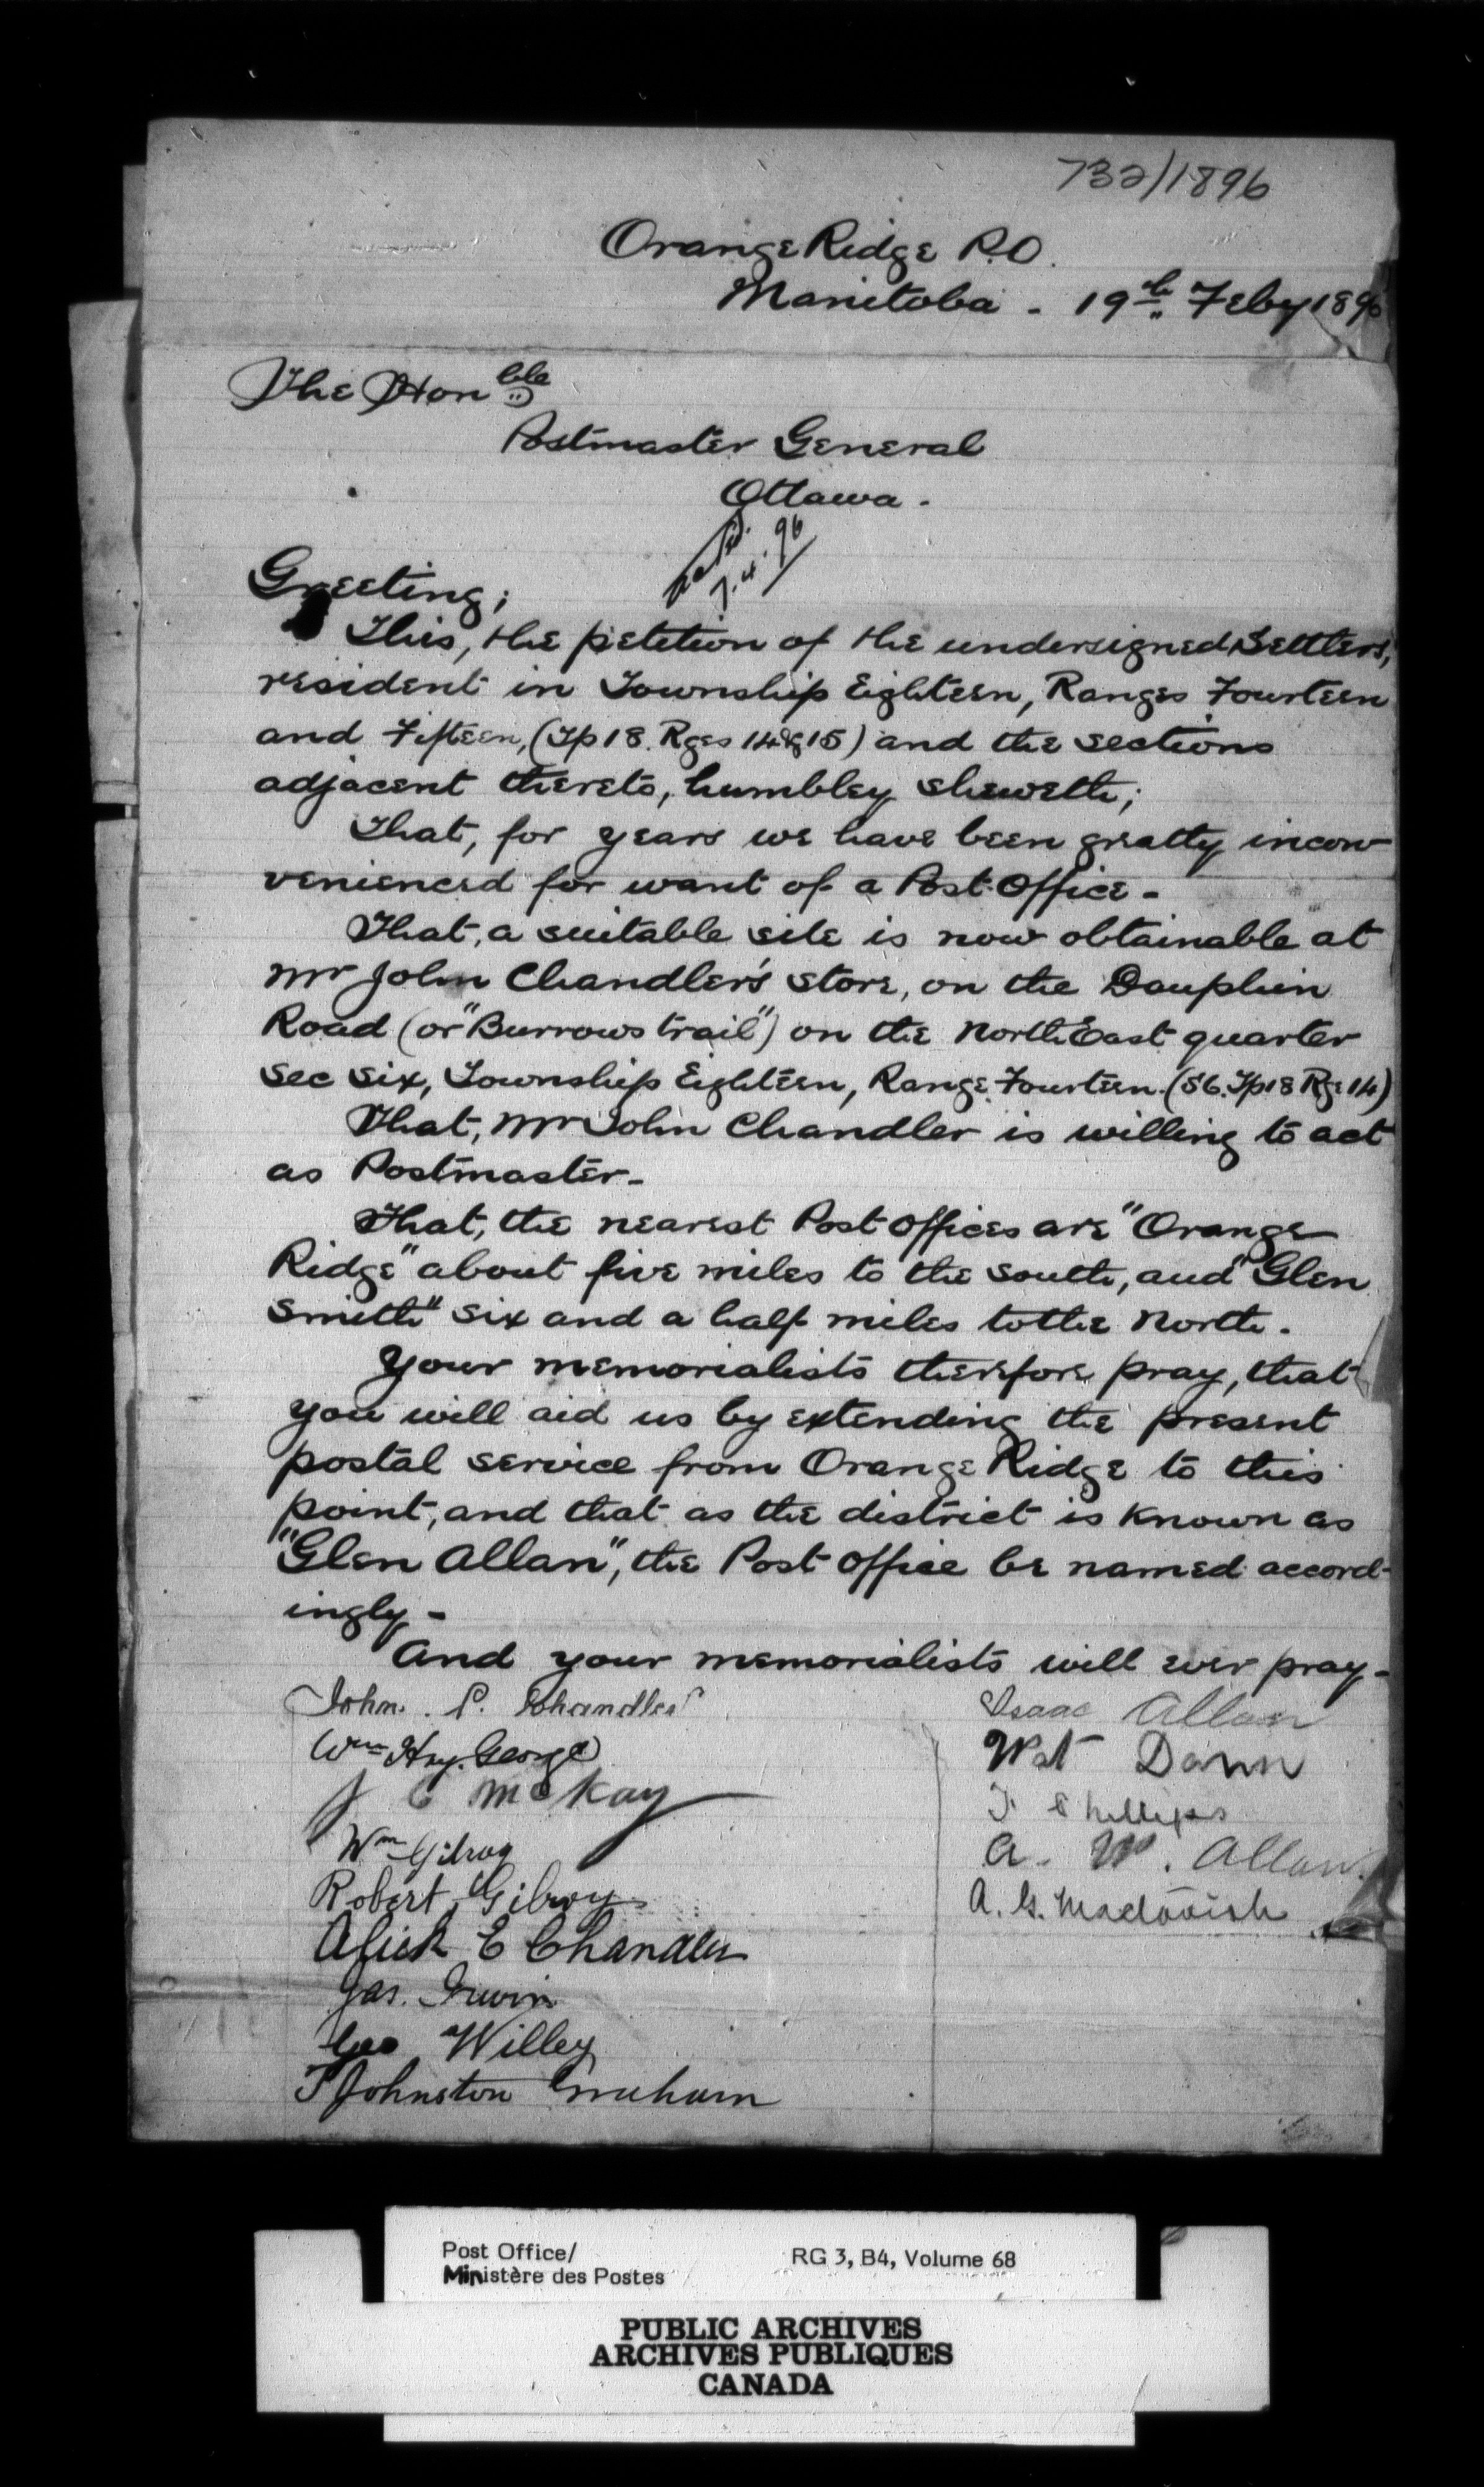 732/1896
Orange Ridge P.O.
Manitoba - 19th Feby 1896
The Honble
Postmaster General
Ottawa.
7.4.96
Greeting;
This, the petition of the undersigned Settlers,
resident in Township Eighteen, Ranges Fourteen
and Fifteen, (Tp 18. Rges 14 & 15) and the sections
adjacent thereto, humbley sheweth;
That, for years we have been greatly incon-
venienced for want of a Post Office -
That, a suitable site is now obtainable at
Mr John Chandler's store, on the Dauphin
Road (or "Burrows trail") on the North East quarter
Sec six, Township Eighteen, Range Fourteen. (S6. Tp 18 Rge 14)
That, Mr John Chandler is willing to act
as Postmaster -
That, the nearest Post Offices are "Orange
Ridge" about five miles to the south, and "Glen
Smith" six and a half miles to the North.
Your memorialists therefore pray, that
you will aid us by extending the present
postal service from Orange Ridge to this
point, and that as the district is known as
"Glen Allan", the Post Office be named accord-
ingly -
And your memorialists will ever pray -
John. P. Chandler
Isaac Allan
Wm Hy. George
Wat Dann
J C McKay
T. Phillips
Wm Gilroy
A. W. Allan.
Robert Gilroy
A. G.
Alick E Chandler
Jas. Irwin
Geo Willey
T Johnston Graham
Post Office/
Ministère des Postes
RG 3, B4, Volume 68
PUBLIC ARCHIVES
ARCHIVES PUBLIQUES
CANADA